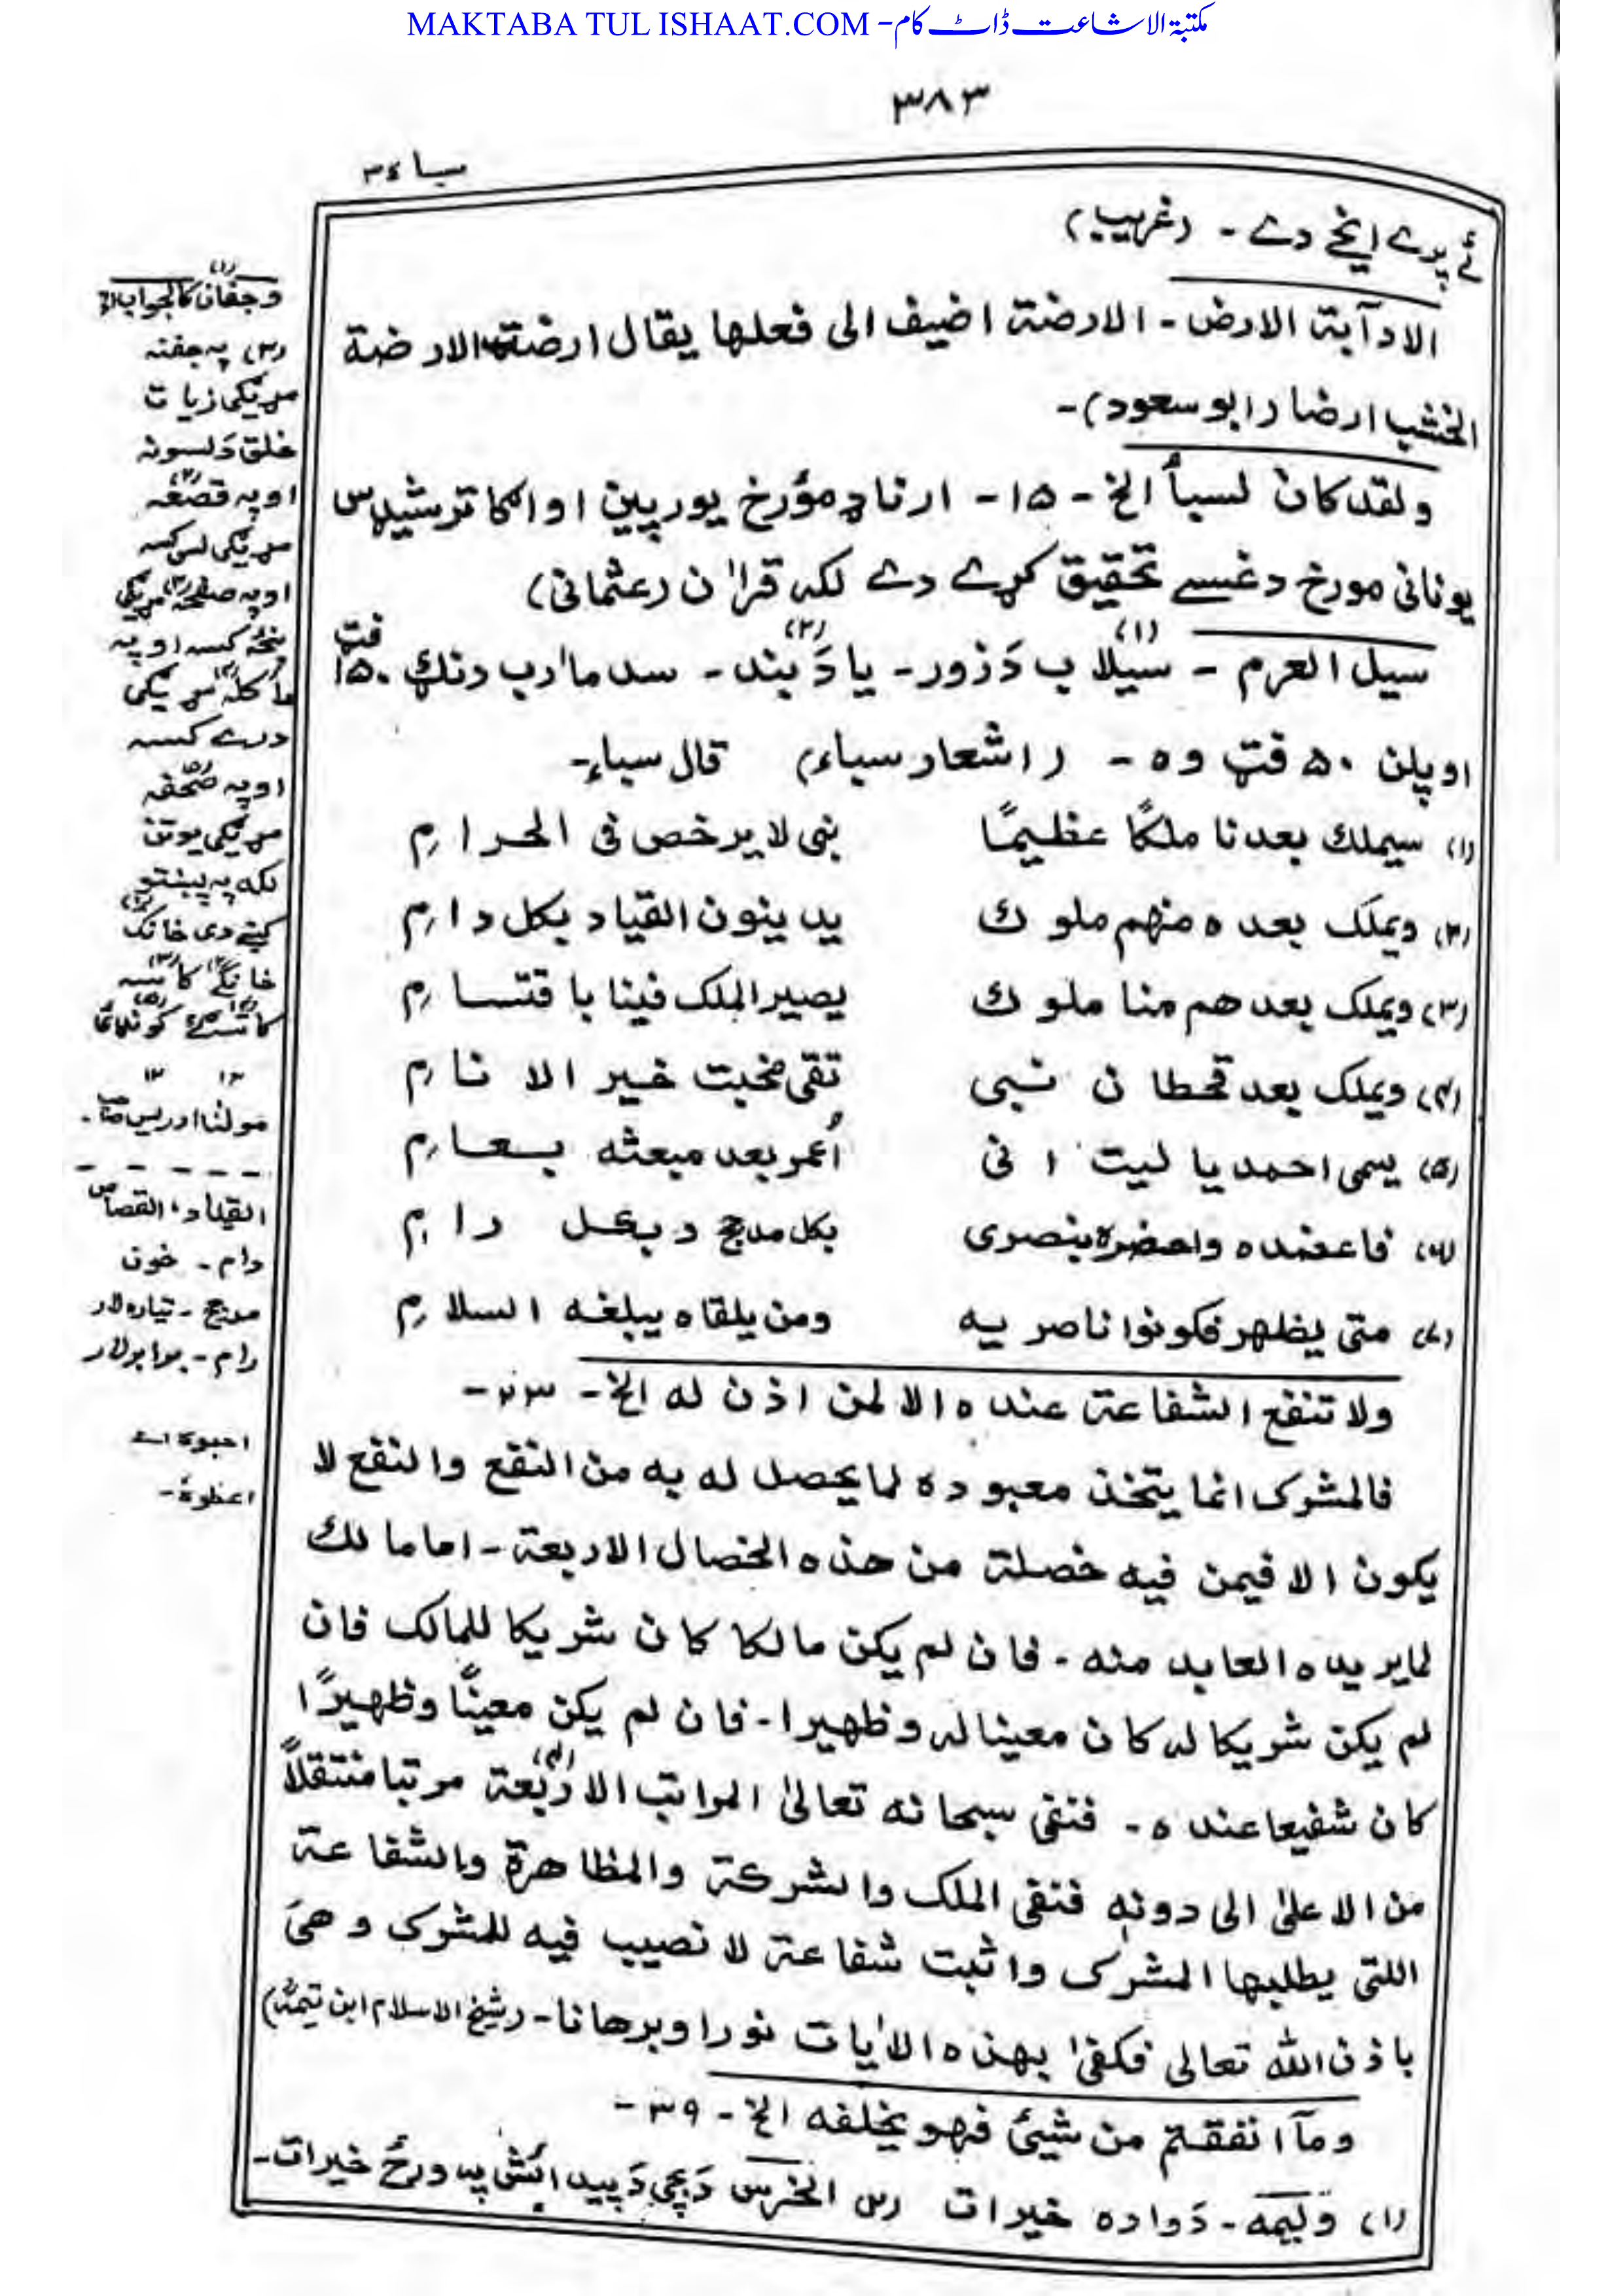 MAKTABA TUL ISHAAT.COM - مکتبۃ الاشاعت ڈاٹ کام
۳۸۳
سبا ۳۴
ئے پرے ایخے دے - (غریب)
الا دآبة الارض - الارضة اضيف الى فعلها يقال ارضة الارضة
الخشب ارضا (ابو سعود) -
ولقد كان لسبأ الخ - ۱۵ - ارناډ مؤرخ یورپین او اګاترشیدس
یونانی مورخ دغسے تحقیق کړے دے لکہ قراٰن (عثمانی)
سيل العرم - سیلاب دَ زور - یا دَ بند - سد مارب دنګ ۱۵۰ فټ
(۱) (۲)
او پلن ۵۰ فټ وہ - (اشعار سباء) قال سباء -
(۱) سيملك بعدنا ملكًا عظيمًا نبى لا يرخص فى الحرام
(۲) ويملك بعده منهم ملوك يدينون القياد بكل دام
(۳) ويملك بعدهم منا ملوك يصير الملك فينا باقتسام
(۴) ويملك بعد قحطان نبى تقى مخبت خير الانام
(۵) يسمى احمد يا ليت انى أُعمر بعد مبعثه بعام
(۶) فاعضده واحضره بنصرى بكل مدجج وبكل رام
(۷) متى يظهر فكونوا ناصريه ومن يلقاه يبلغه السلام
ولا تنفع الشفاعة عنده الا لمن اذن له الخ - ۲۳ -
فالمشرك انما يتخذ معبوده لما يحصل له به من النفع والنفع لا
يكون الا فيمن فيه خصلة من هذه الخصال الاربعة - اما مالك
لما يريده العابد منه - فان لم يكن مالكا كان شريكا للمالك فان
لم يكن شريكا له كان معينا له وظهيرا - فان لم يكن معينًا وظهيرًا
كان شفيعا عنده - فنفى سبحانه تعالىٰ المراتب الاربعة مرتبا منتقلاً
(۴)
من الاعلىٰ الى دونه فنفى الملك والشركة والمظاهرة والشفاعة
اللتى يطلبها المشرك واثبت شفاعة لا نصيب فيه للمشرك وهى
باذن الله تعالى فكفىٰ بهذه الاٰيات نورا وبرهانا - (شيخ الاسلام ابن تيميةؒ)
ومآ انفقتم من شيئ فهو يخلفه الخ - ۳۹ -
(۱) وَلیمہ - دَ وادہ خیرات (۲) الخرس دَ بچی دَ پیدائش پہ ورځ خیرات -
(۱)
وجفان كالجواب الخ
(۲) پہ جفنہ
کړیکی زیات
خلق دَلسونہ
او پہ قصعہ
کړیکی لس کسہ
او پہ صفحہ
پنځہ کسہ او پہ
ماکلہ
درے کسہ
او پہ صحفہ
کړیکی یوتن
لکہ پہ پښتو
کښے دی خانک
مولٰنا ادریس صاحب -
القیاد، القصاص
دام - خون
مدجج - تیارہ لار
رام -